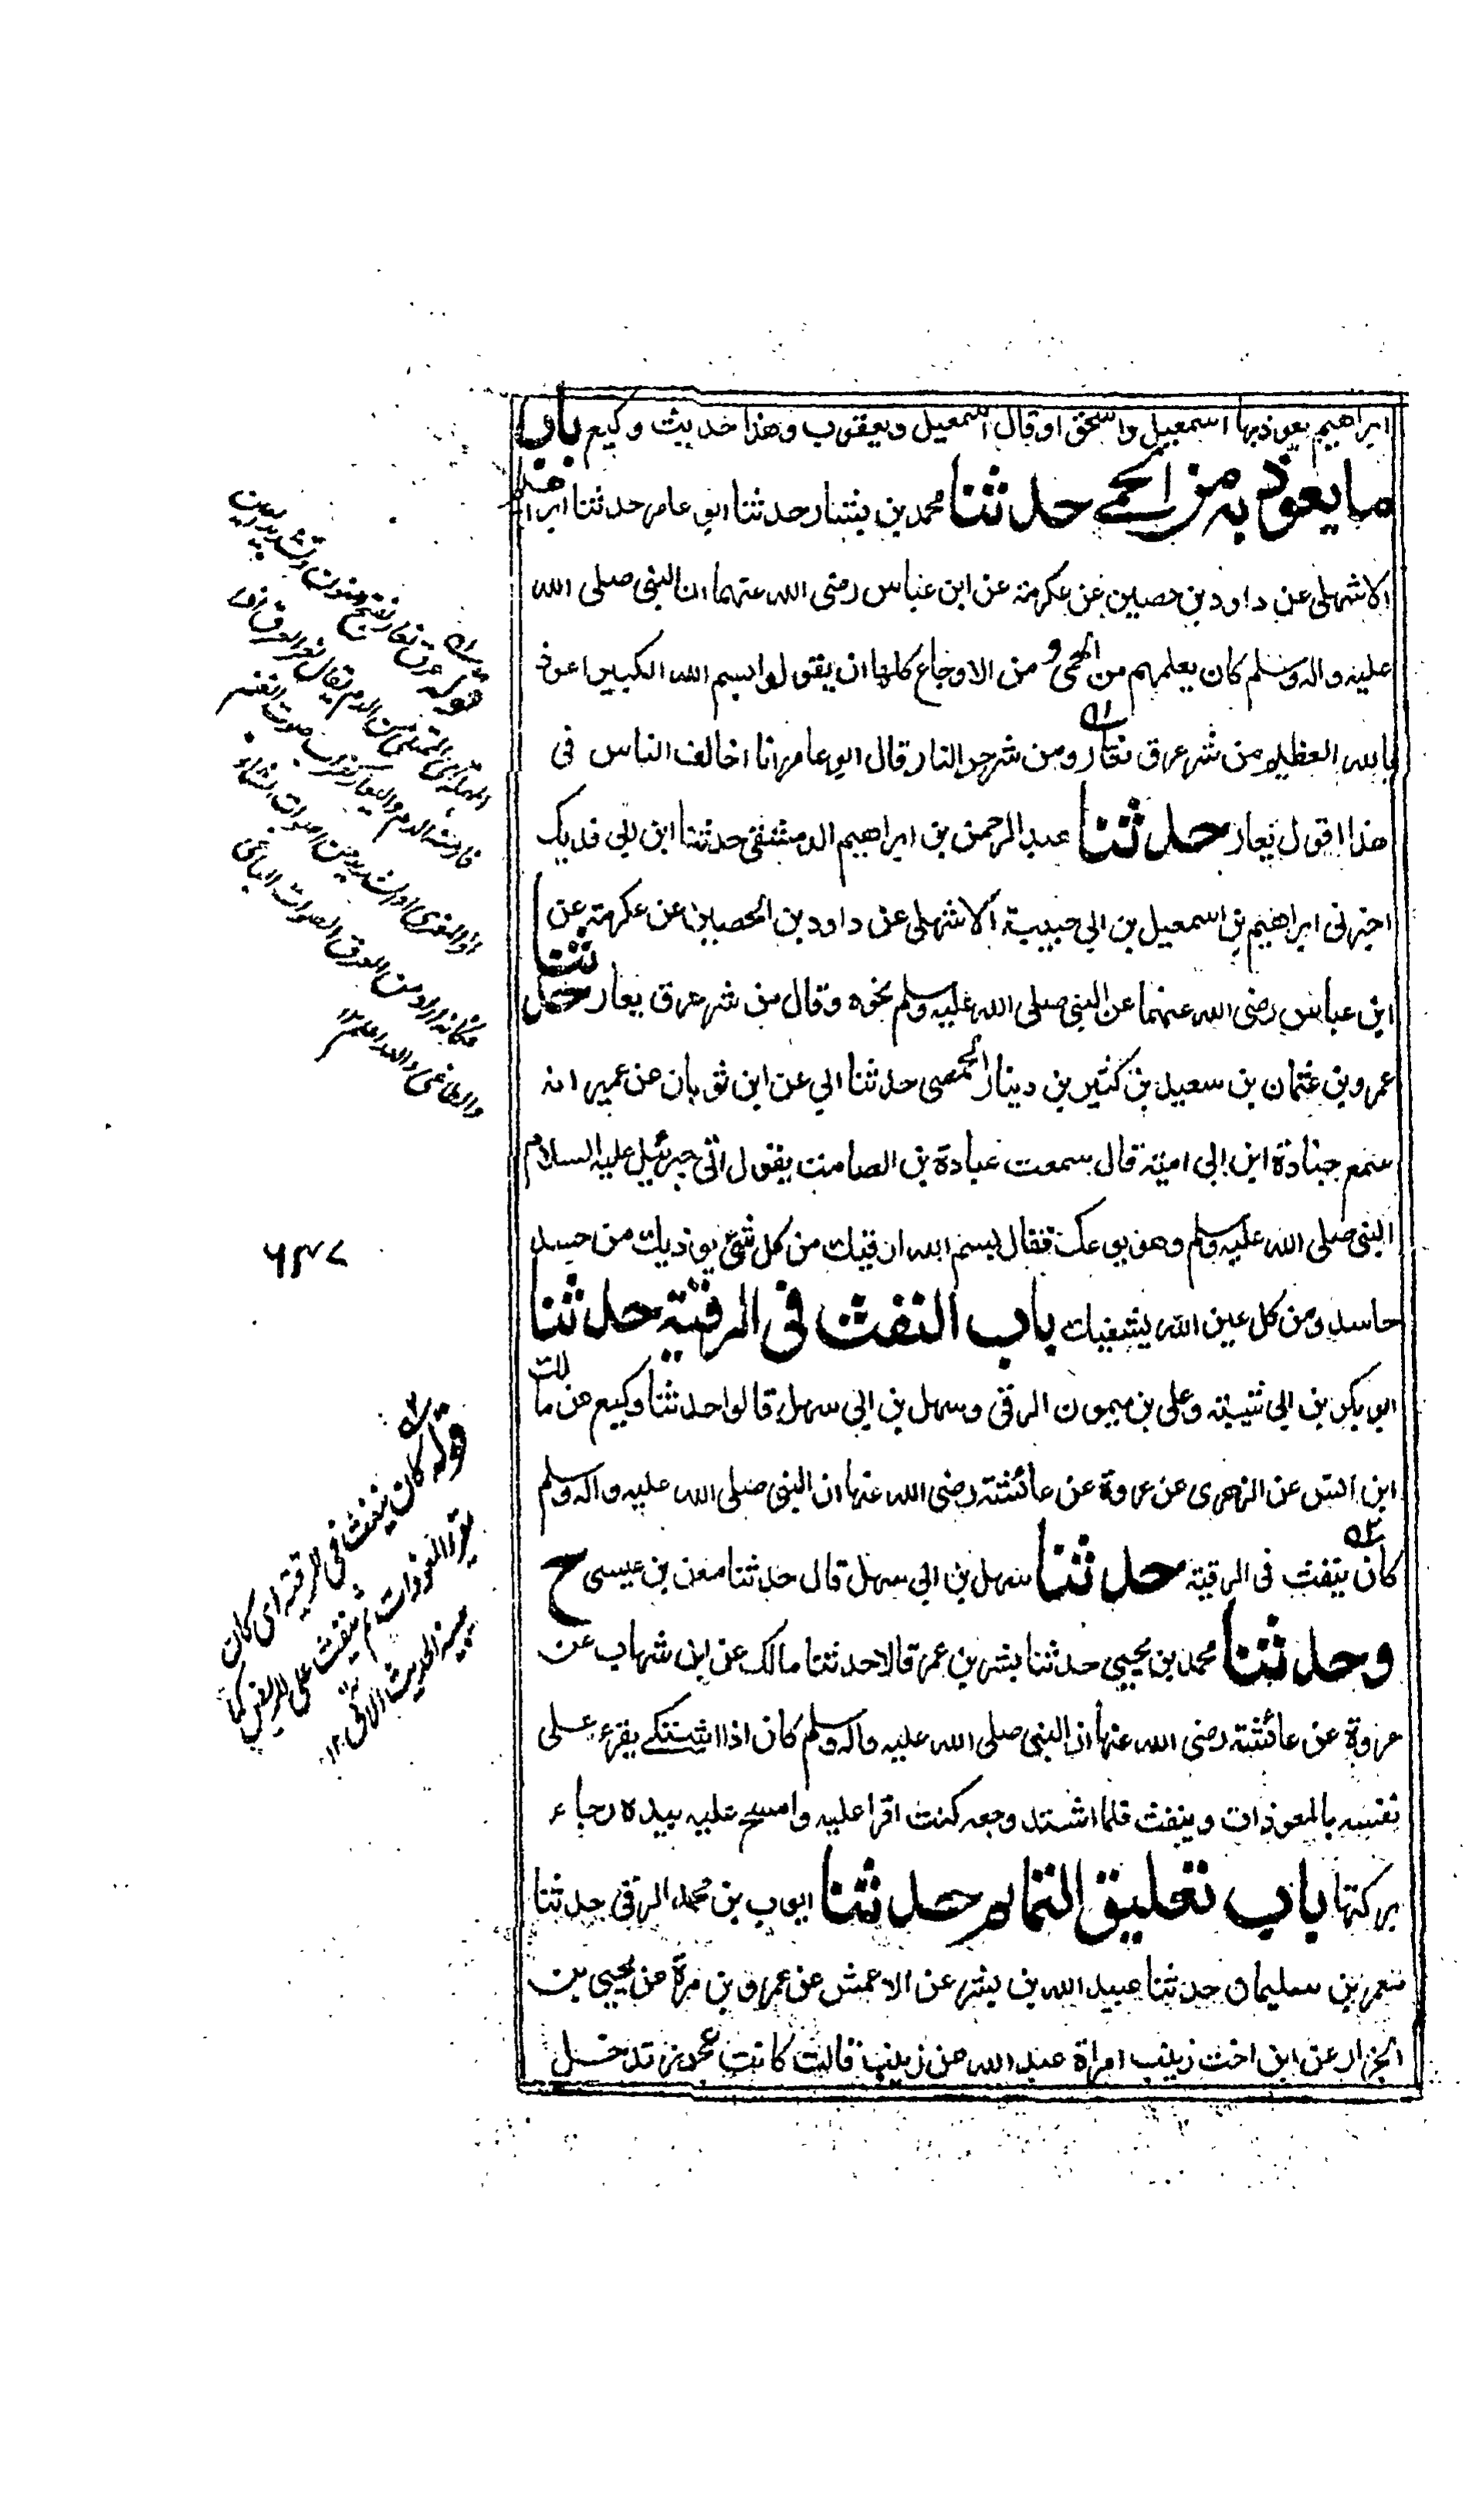 ابراهيم يعوذ بها اسمعيل واسحق او قال اسمعيل ويعقوب وهذا حديث وكيع باب
ما يعوذ به من الحمى حدثنا محمد بن بشار حدثنا ابو عامر حدثنا ابراهيم
الاشهلى عن داود بن حصين عن عكرمة عن ابن عباس رضى الله عنهما ان النبى صلى الله
عليه واله وسلم كان يعلمهم من الحمى و من الاوجاع كلها ان يقولوا بسم الله الكبير اعوذ
بالله العظيم من شر عرق نعار ومن شر حر النار قال ابو عامر انا اخالف الناس فى
هذا اقول يعار حدثنا عبد الرحمن بن ابراهيم الدمشقى حدثنا ابن ابى فديك
اخبرنى ابراهيم بن اسمعيل بن ابى حبيبة الاشهلى عن داود بن الحصين عن عكرمة عن
ابن عباس رضى الله عنهما عن النبى صلى الله عليه وسلم نحوه وقال من شر عرق يعار حدثنا
عمرو بن عثمان بن سعيد بن كثير بن دينار الحمصى حدثنا ابى عن ابن ثوبان عن عمير انه
سمع جنادة ابن ابى امية قال سمعت عبادة بن الصامت يقول اتى جبرئيل عليه السلام
النبى صلى الله عليه وسلم وهو يوعك فقال بسم الله ارقيك من كل شئ يوذيك من حسد
حاسد ومن كل عين الله يشفيك باب النفث فى الرقية حدثنا
ابو بكر بن ابى شيبة وعلى بن ميمون الرقى وسهل بن ابى سهل قالوا حدثنا وكيع عن مالك
ابن انس عن الزهرى عن عروة عن عائشة رضى الله عنها ان النبى صلى الله عليه واله وسلم
كان ينفث فى الرقية حدثنا سهل بن ابى سهل قال حدثنا معن بن عيسى ح
وحدثنا محمد بن يحيى حدثنا بشر بن عمر قالا حدثنا مالك عن ابن شهاب عن
عروة عن عائشة رضى الله عنها ان النبى صلى الله عليه واله وسلم كان اذا اشتكى يقرء على
نفسه بالمعوذات وينفث فلما اشتد وجعه كنت اقرا عليه وامسح عليه بيده رجاء
بركتها باب تعليق التمائم حدثنا ايوب بن محمد الرقى حدثنا
معمر بن سليمان حدثنا عبد الله بن بشر عن الاعمش عن عمرو بن مرة عن يحيى بن
الجزار عن ابن اخت زينب امراة عبد الله عن زينب قالت كانت عجوز تدخل
قوله عرق نعار بفتح نون وتشديد عين
المهملة اى الممتلئ من الدم يقال نعر العرق اذا
فار منه الدم واليعار صوت الغنم
والطاغى والله اعلم ١٢
قوله كان ينفث فى الرقية اى كان
يقرء المعوذات ثم ينفث على المريض كما
يبينه الحديث الاتى ١٢